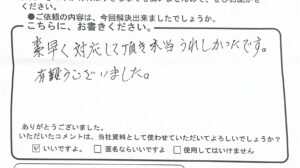 ください。
●ご依頼の内容は、今回解決出来ましたでしょうか。
こちらに、お書きください。
素早く対応して頂き本当うれしかったです。
有難うございました。
ありがとうございました。
いただいたコメントは、当社資料として使わせていただいてよろしいでしょうか？
☑ いいですよ。 □ 匿名ならいいですよ □ 使用してはいけません